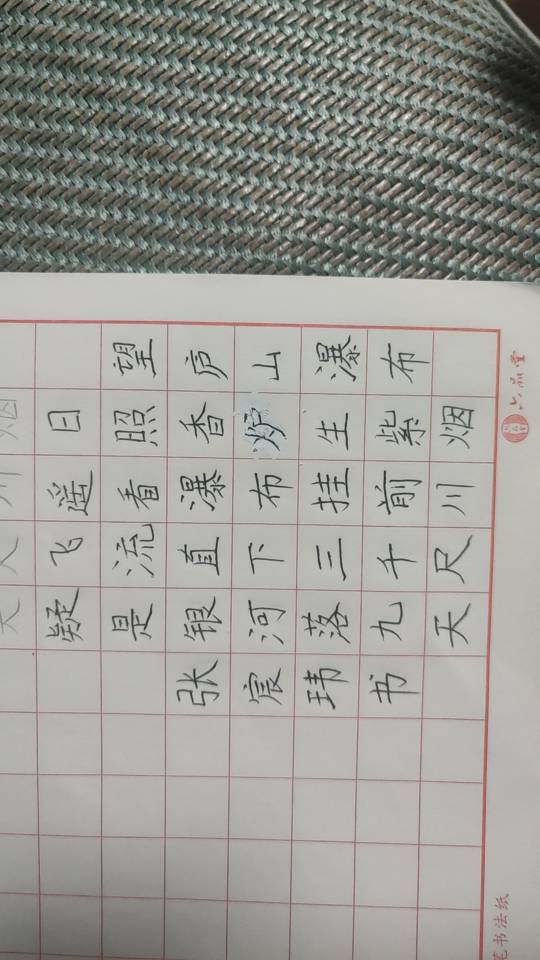 望庐山瀑布
日照香炉生紫烟
遥看瀑布挂前川
飞流直下三千尺
疑是银河落九天
张宸玮书
六品堂
笔书法纸